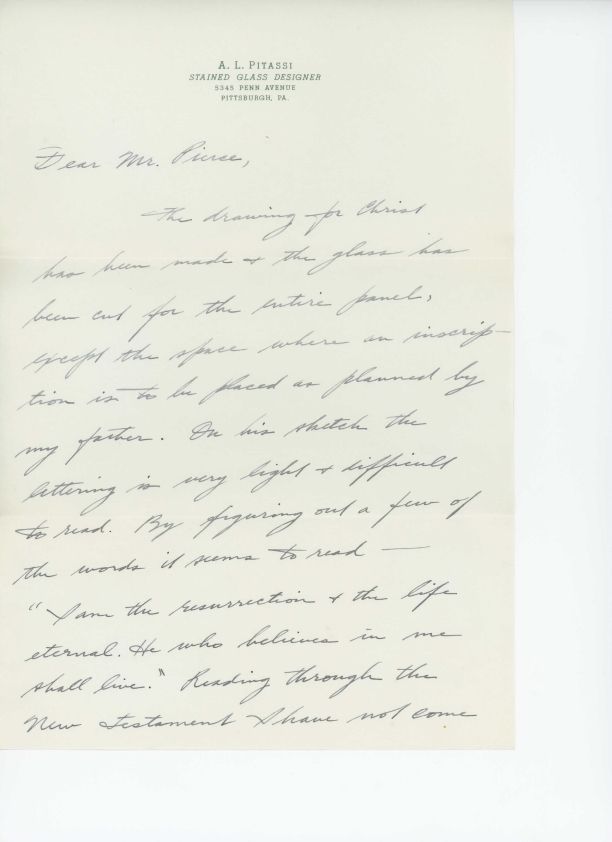 A. L. PITASSI
STAINED GLASS DESIGNER
5345 PENN AVENUE
PITTSBURGH, PA.
Dear Mr. Pierce,
The drawing for Christ
has been made & the glass has
been cut for the entire panel,
except the space where an inscrip-
tion is to be placed as planned by
my father. On his sketch the
lettering is very light & difficult
to read. By figuring out a few of
the words it seems to read —
"I am the resurrection & the life
eternal. He who believes in me
shall live." Reading through the
New Testament I have not come